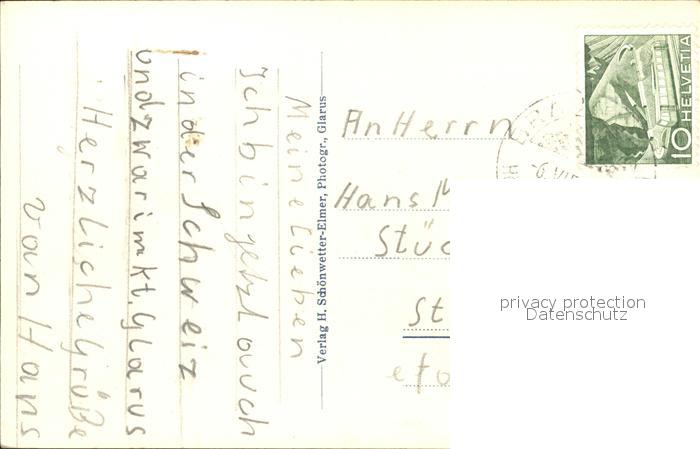 Meine Lieben
Ich bin jetzt auch
in der Schweiz
und zwar im Kt. Glarus
Herzliche Grüße
von Hans
Verlag H. Schönwetter-Elmer, Photogr., Glarus
An Herrn
Hans M
Stüc
St
HELVETIA
10
privacy protection
Datenschutz